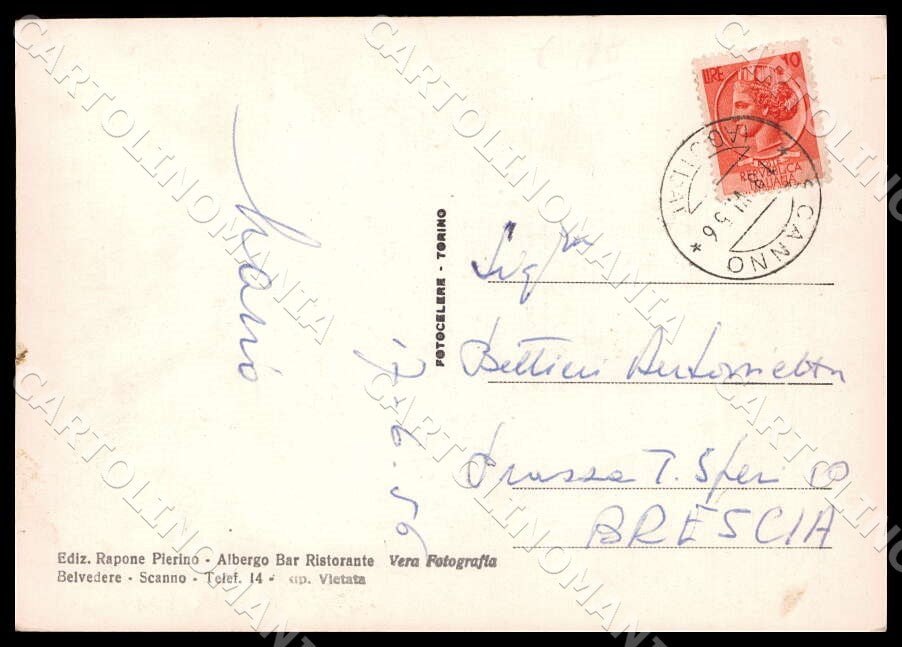 Mario
7-6-56
FOTOCELERE - TORINO
LIRE 10
REPVBBLICA
ITALIANA
SCANNO
(AQUILA)
VI 56
Sig.ra
Bettini Antonietta
BRESCIA
Ediz. Rapone Pierino - Albergo Bar Ristorante Vera Fotografia
Belvedere - Scanno - Telef. 14 - Vietata
CARTOLINOMANIA